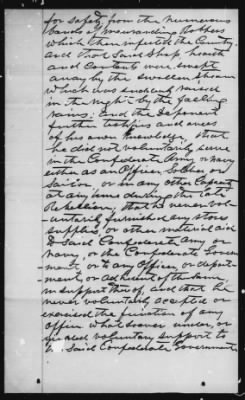 for safety from the numerous
bands of marauding Robbers
which then infested the Country.
and that said Shop
and Contents were swept
away by the swollen stream
which was suddenly raised
in the night by the falling
rains; and the deponent
further testifies and avers
of his own Knowledge that
he did not voluntarily serve
in the Confederate Army, or navy
either as an Officer, Soldier or
Sailor, or in any other Capacity
at any time during the late
Rebellion; that he never vol-
-untarily furnished any stores
supplies, or other material aid
to said Confederate Army or
navy, or the Confederate Govern-
-ment, or to any Officer, or depart-
-ment, or adherent of the same
in support thereof, and that he
never voluntarily accepted or
exercised the function of any
office whatsoever under, or
yielded voluntary support to
the said Confederate Government.